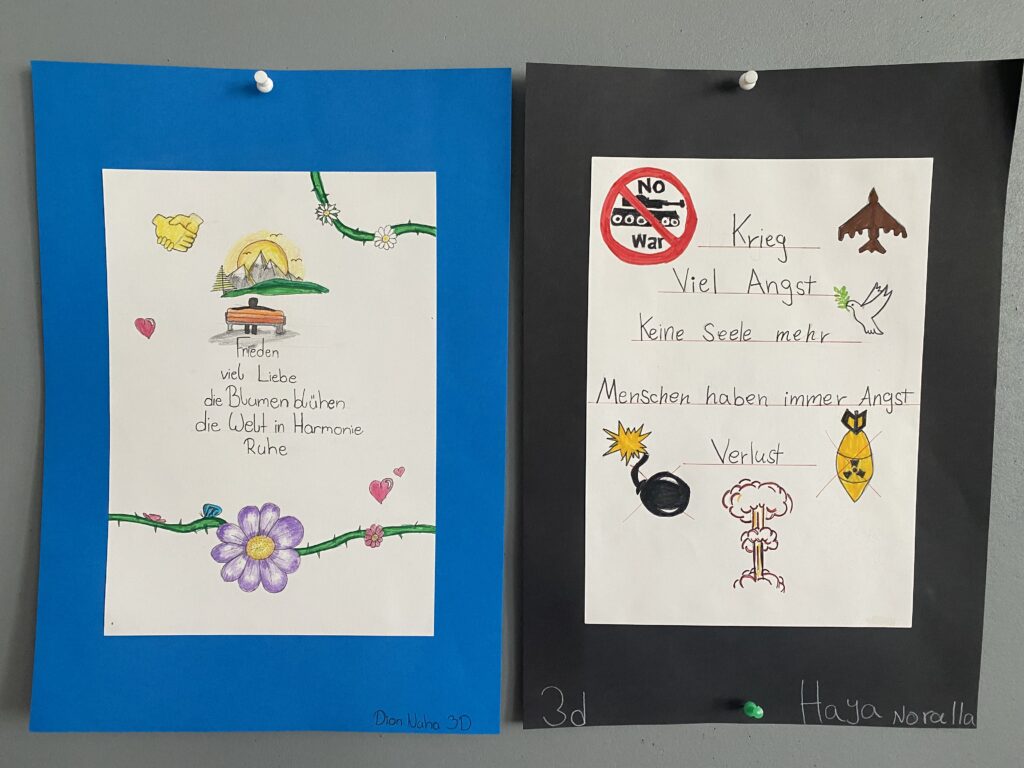 Frieden
viel Liebe
die Blumen blühen
die Welt in Harmonie
Ruhe
Dion Naha 3D
No
War
Krieg
Viel Angst
Keine Seele mehr
Menschen haben immer Angst
Verlust
3d
Haya Noralla